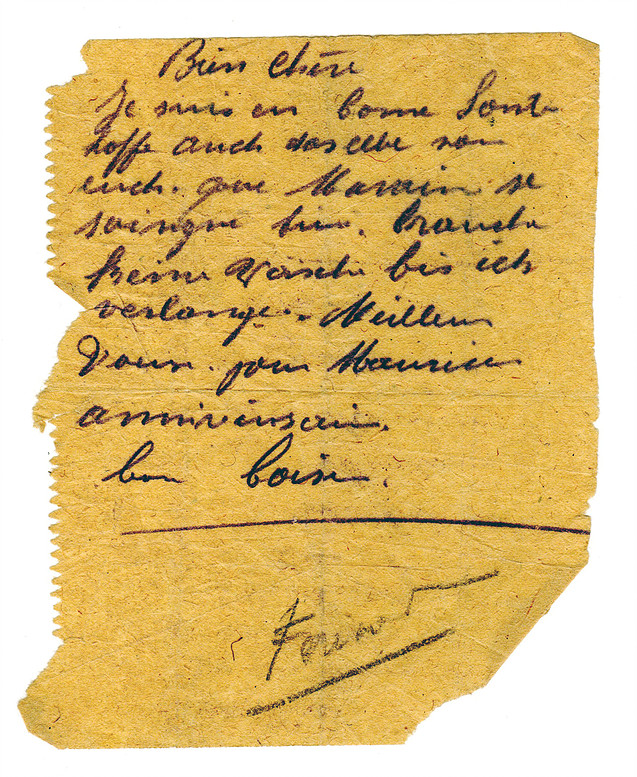 Bien Chère
Je suis en bonne Sonte
hoffe auch dasselbe von
euch. que Maman se
soingne bien. brauche
keine Wäsche bis ich
verlange. Meilleur
Voeux pour Maurice
anniversair.
bon baise.